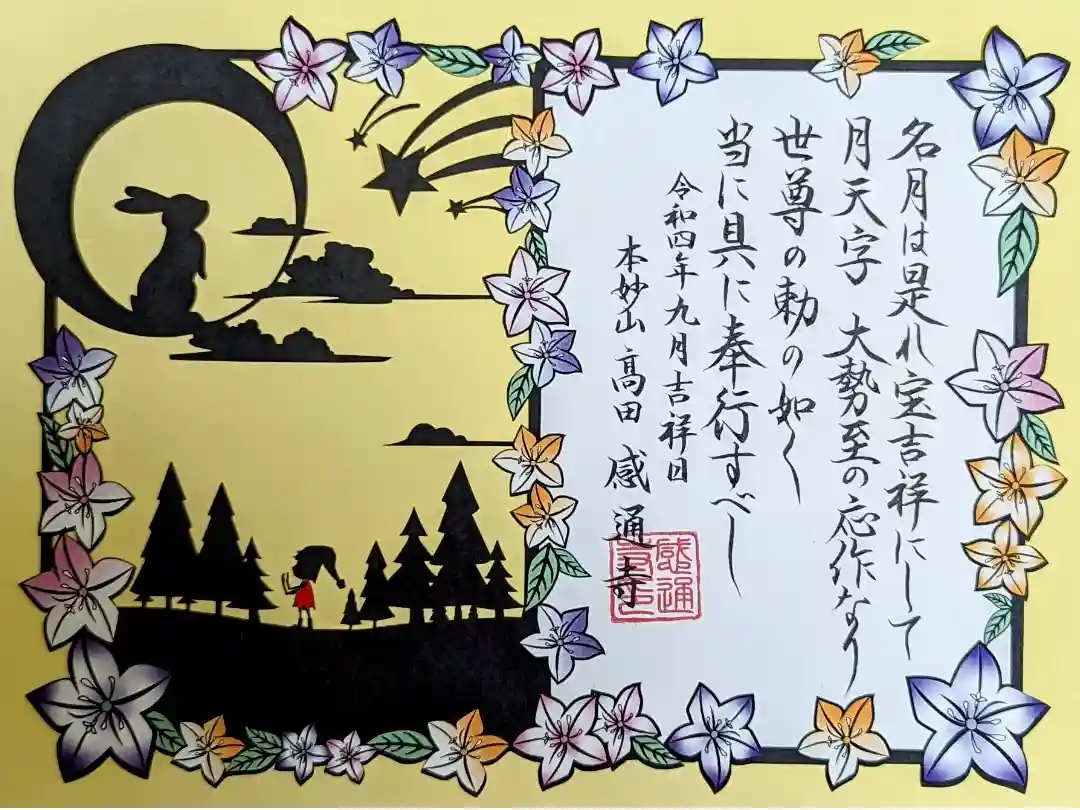 名月は是れ宝吉祥にして
月天子 大勢至の応作なり
世尊の勅の如く
当に具に奉行すべし
令和四年九月吉祥日
本妙山 高田 感通寺
感通